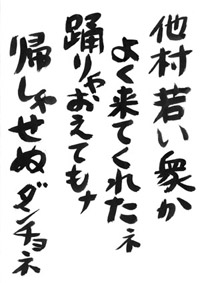 他村若い衆か
よく来てくれたネ
踊りゃおえてもナ
帰しゃせぬダンチョネ